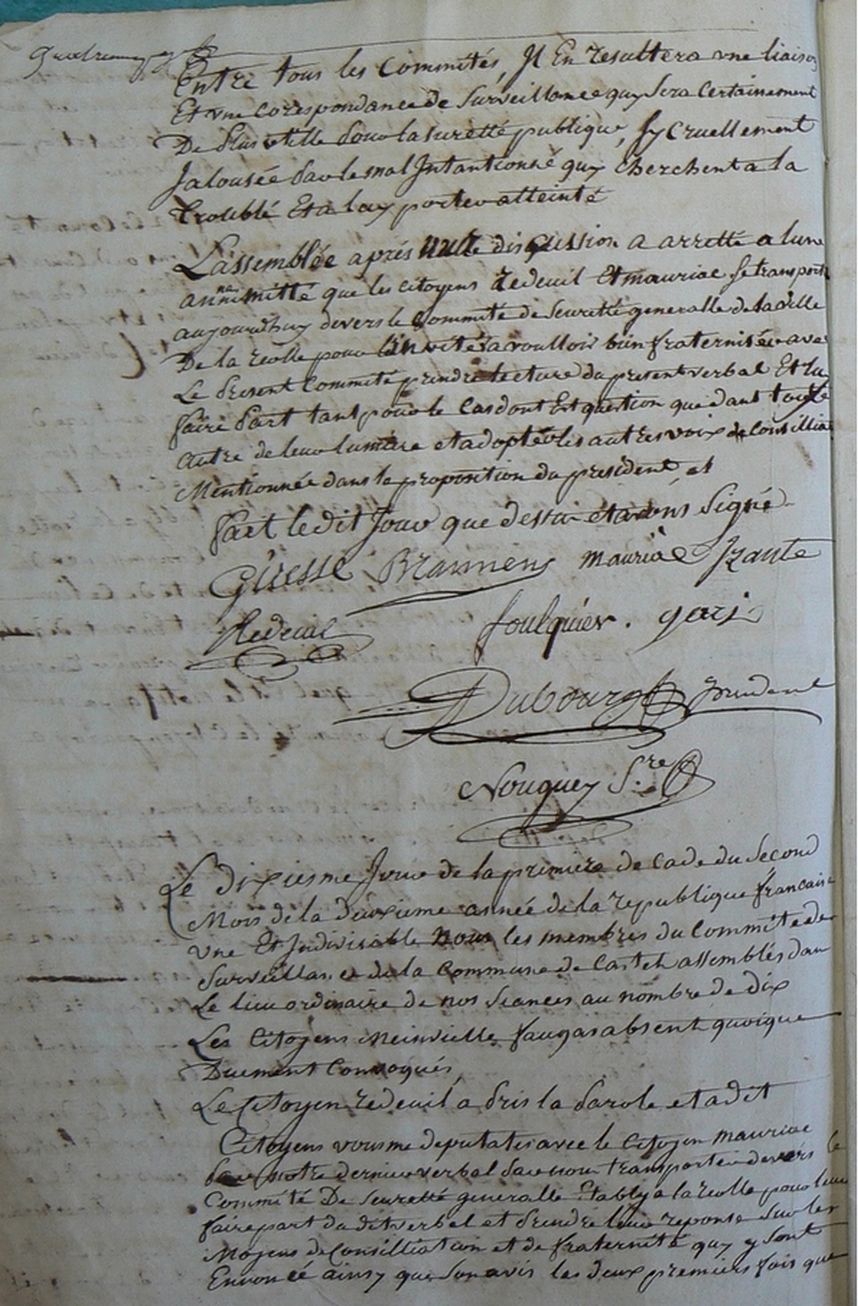 Entre tous les Commités, Jl En resultera une liaison
Et une Corespondance de Surveillance quy Sera Certainement
De plus utille pour la suretté publique, sy Cruellement
Jalousée par les mal Jntantionné quy Cherchent a la
troublé Et a lay porter atteinte
L'assemblée aprés mure disqussion a arretté a lune
annimitté que les citoyens Redeuil Et mauriac se transport
aujourdhuy devers le Commité de Seuretté generalle de la ville
De la reolle pour Linviter a voulloir bien fraternisée avec
Le present Commité prendre lecture du present verbal Et lu
faire part tant pour le Cas dont Est question que dant toute
autre de leur lumiere et adopté les autres voix de Consillia
Mentionnée dans la proposition du president, et
fait le dit Jour que dessus et avons Signé
Guesse Brannens mauriac Izante
Redeuil foulquier. garis
Dubourg President
Nouguey S.re
Le dixiesme Jour de la premiere de Cade du Second
Mois de la deuxieme année de la republique francaise
une Et Jndivisable Nous les membres du Commité de
Surveillance de la Commune de Casteh assemblés dans
Le lieu ordinaire de nos Seances au nombre de dix
Les Citoyens Meinvielle faugas absent quoique
Duement Convoqués,
Le Citoyen redeuil a pris la parole et a dit
Citoyens vous me deputates avec le Citoyen mauriac
par notre dernier verbal pour nous transporter devers le
Commité De Seuretté generalle Etably a la reolle pour leur
faire part du dit verbal et prendre leur reponse Sur les
Moyens de Consilliation et de fraternité quy y sont
Ennoncé ainsy que son avis les deux premiers fois que